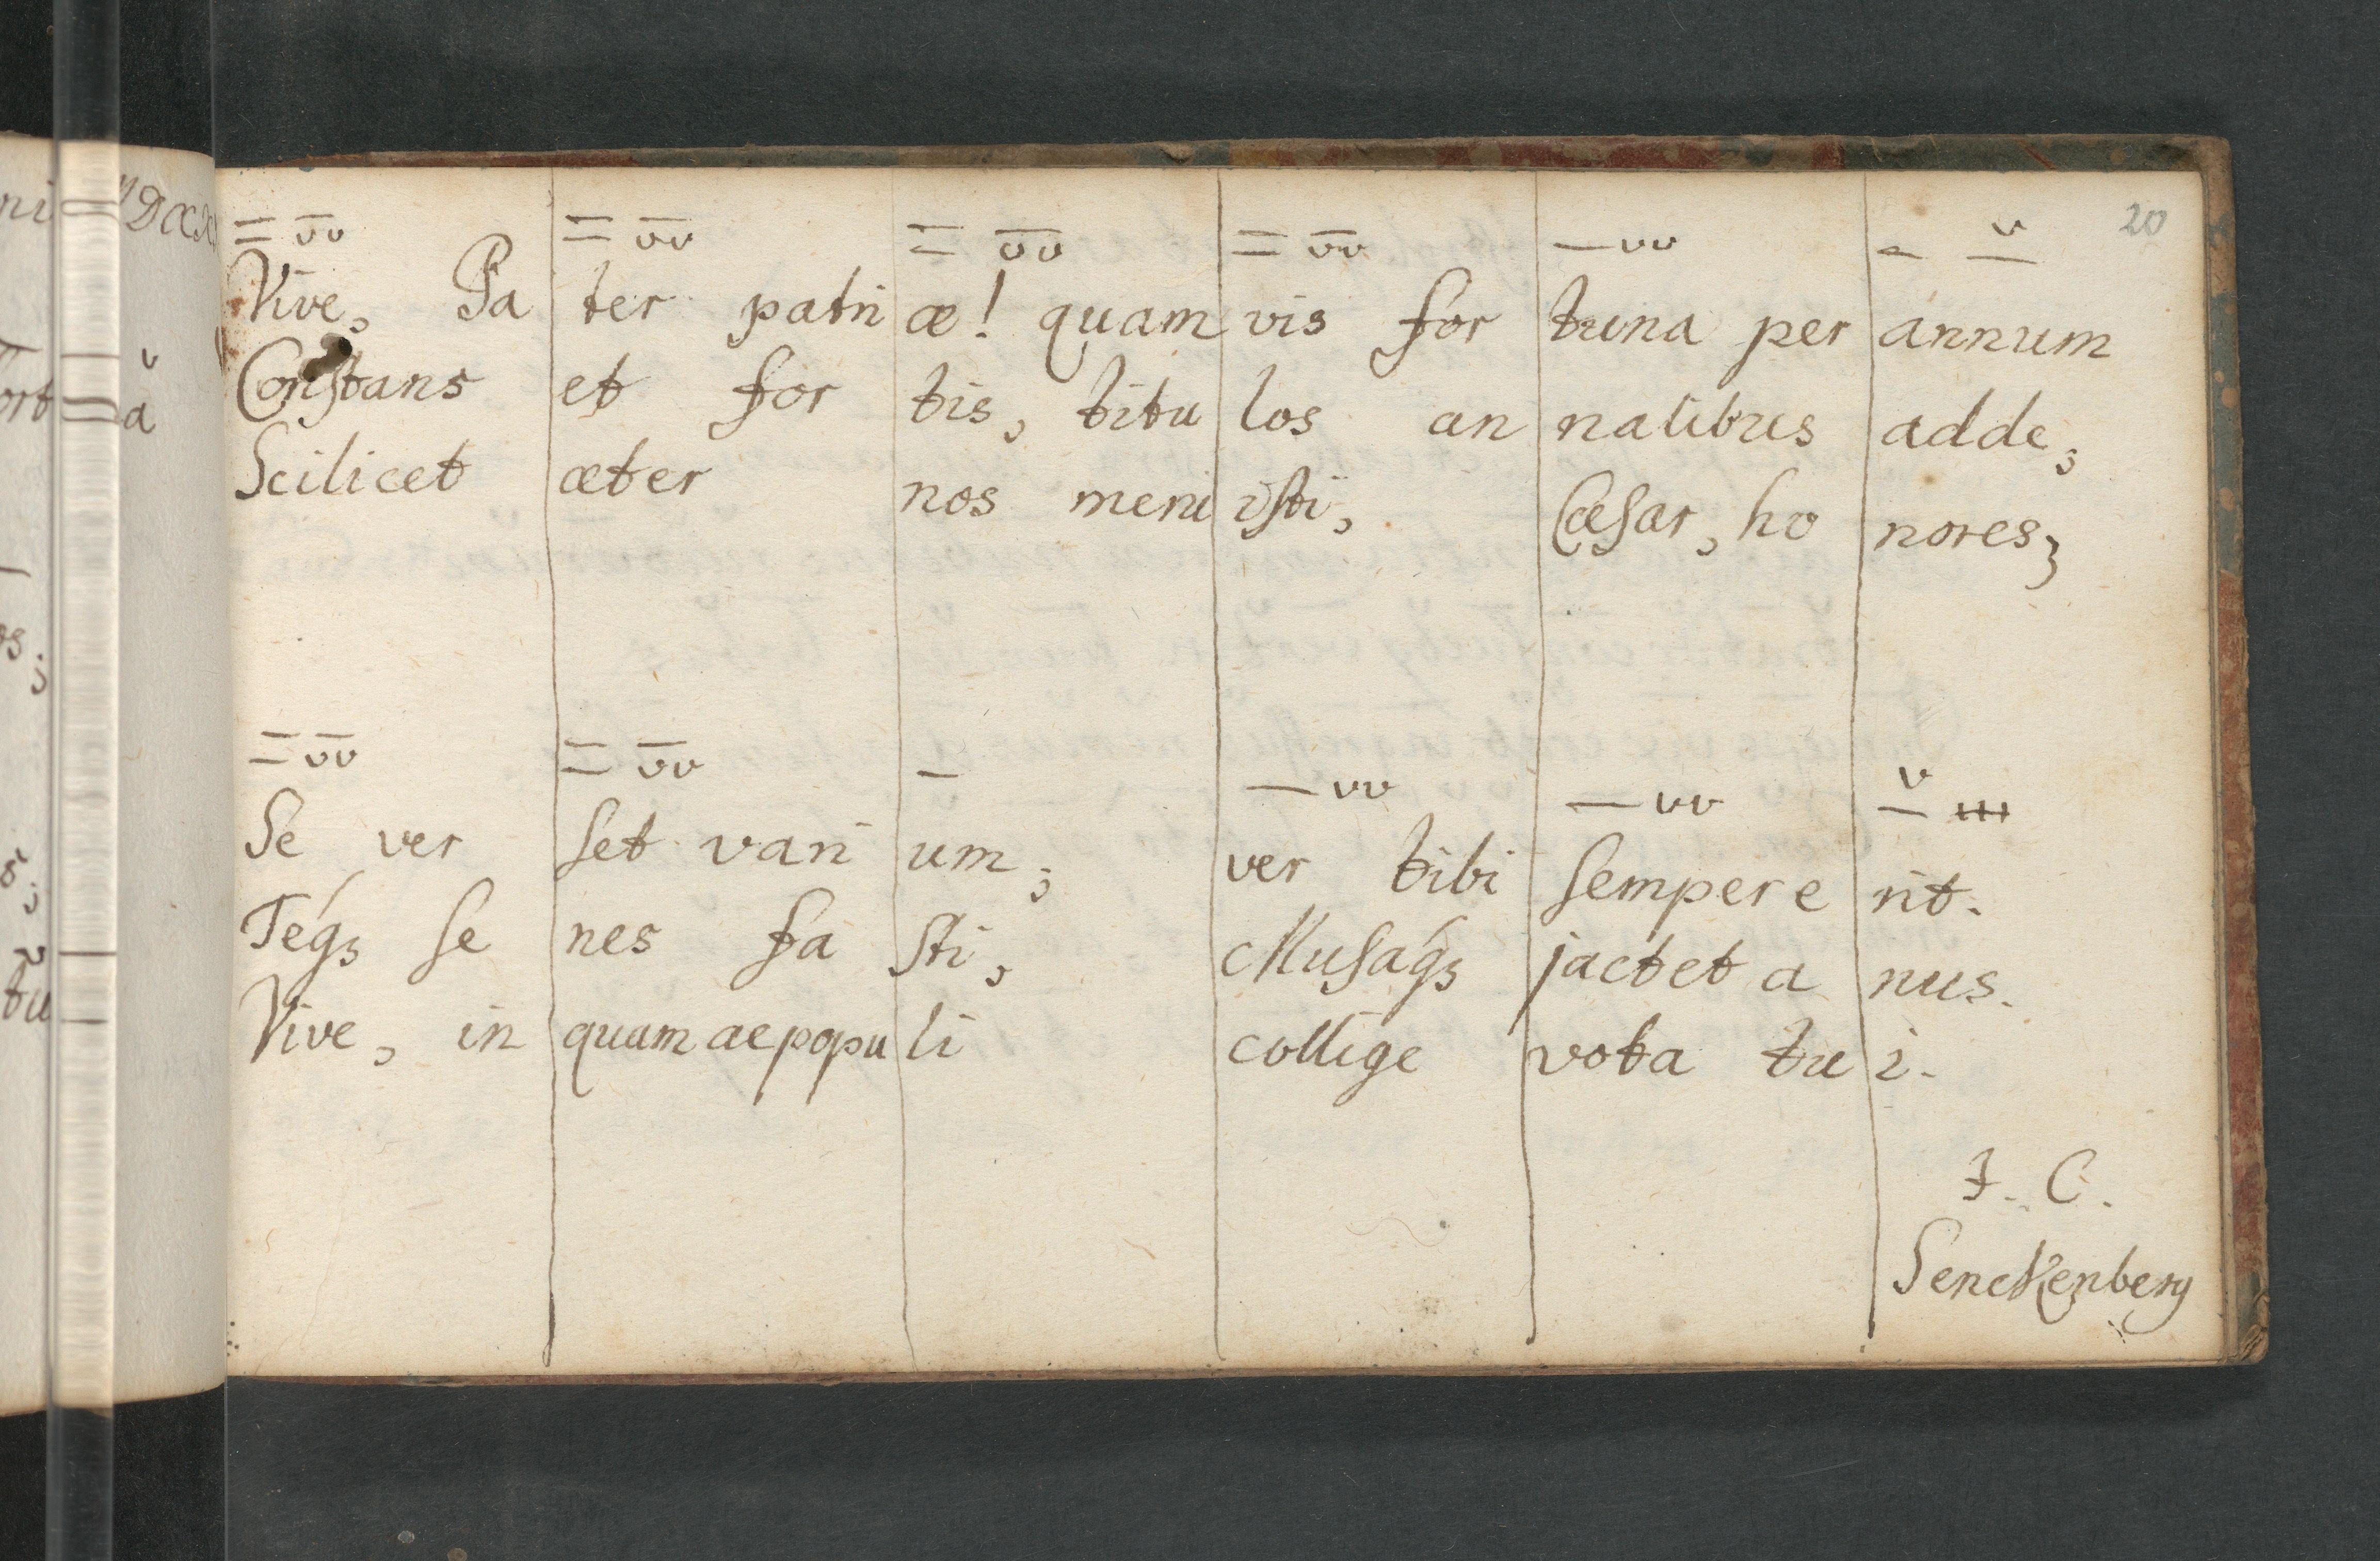 20
Vive, Pa ter patri æ! quam vis for tuna per annum
Conſtans et for tis, titu los an nalibus adde,
Scilicet æter nos meru iſti, Cæſar, ho nores;
Se ver ſet vari um; ver tibi ſemper e rit.
Teqꝫ ſe nes fa ſti, Muſaqꝫ jactet a nus.
Vive, in quam ac popu li collige vota tu i.
I. C.
Senckenberg